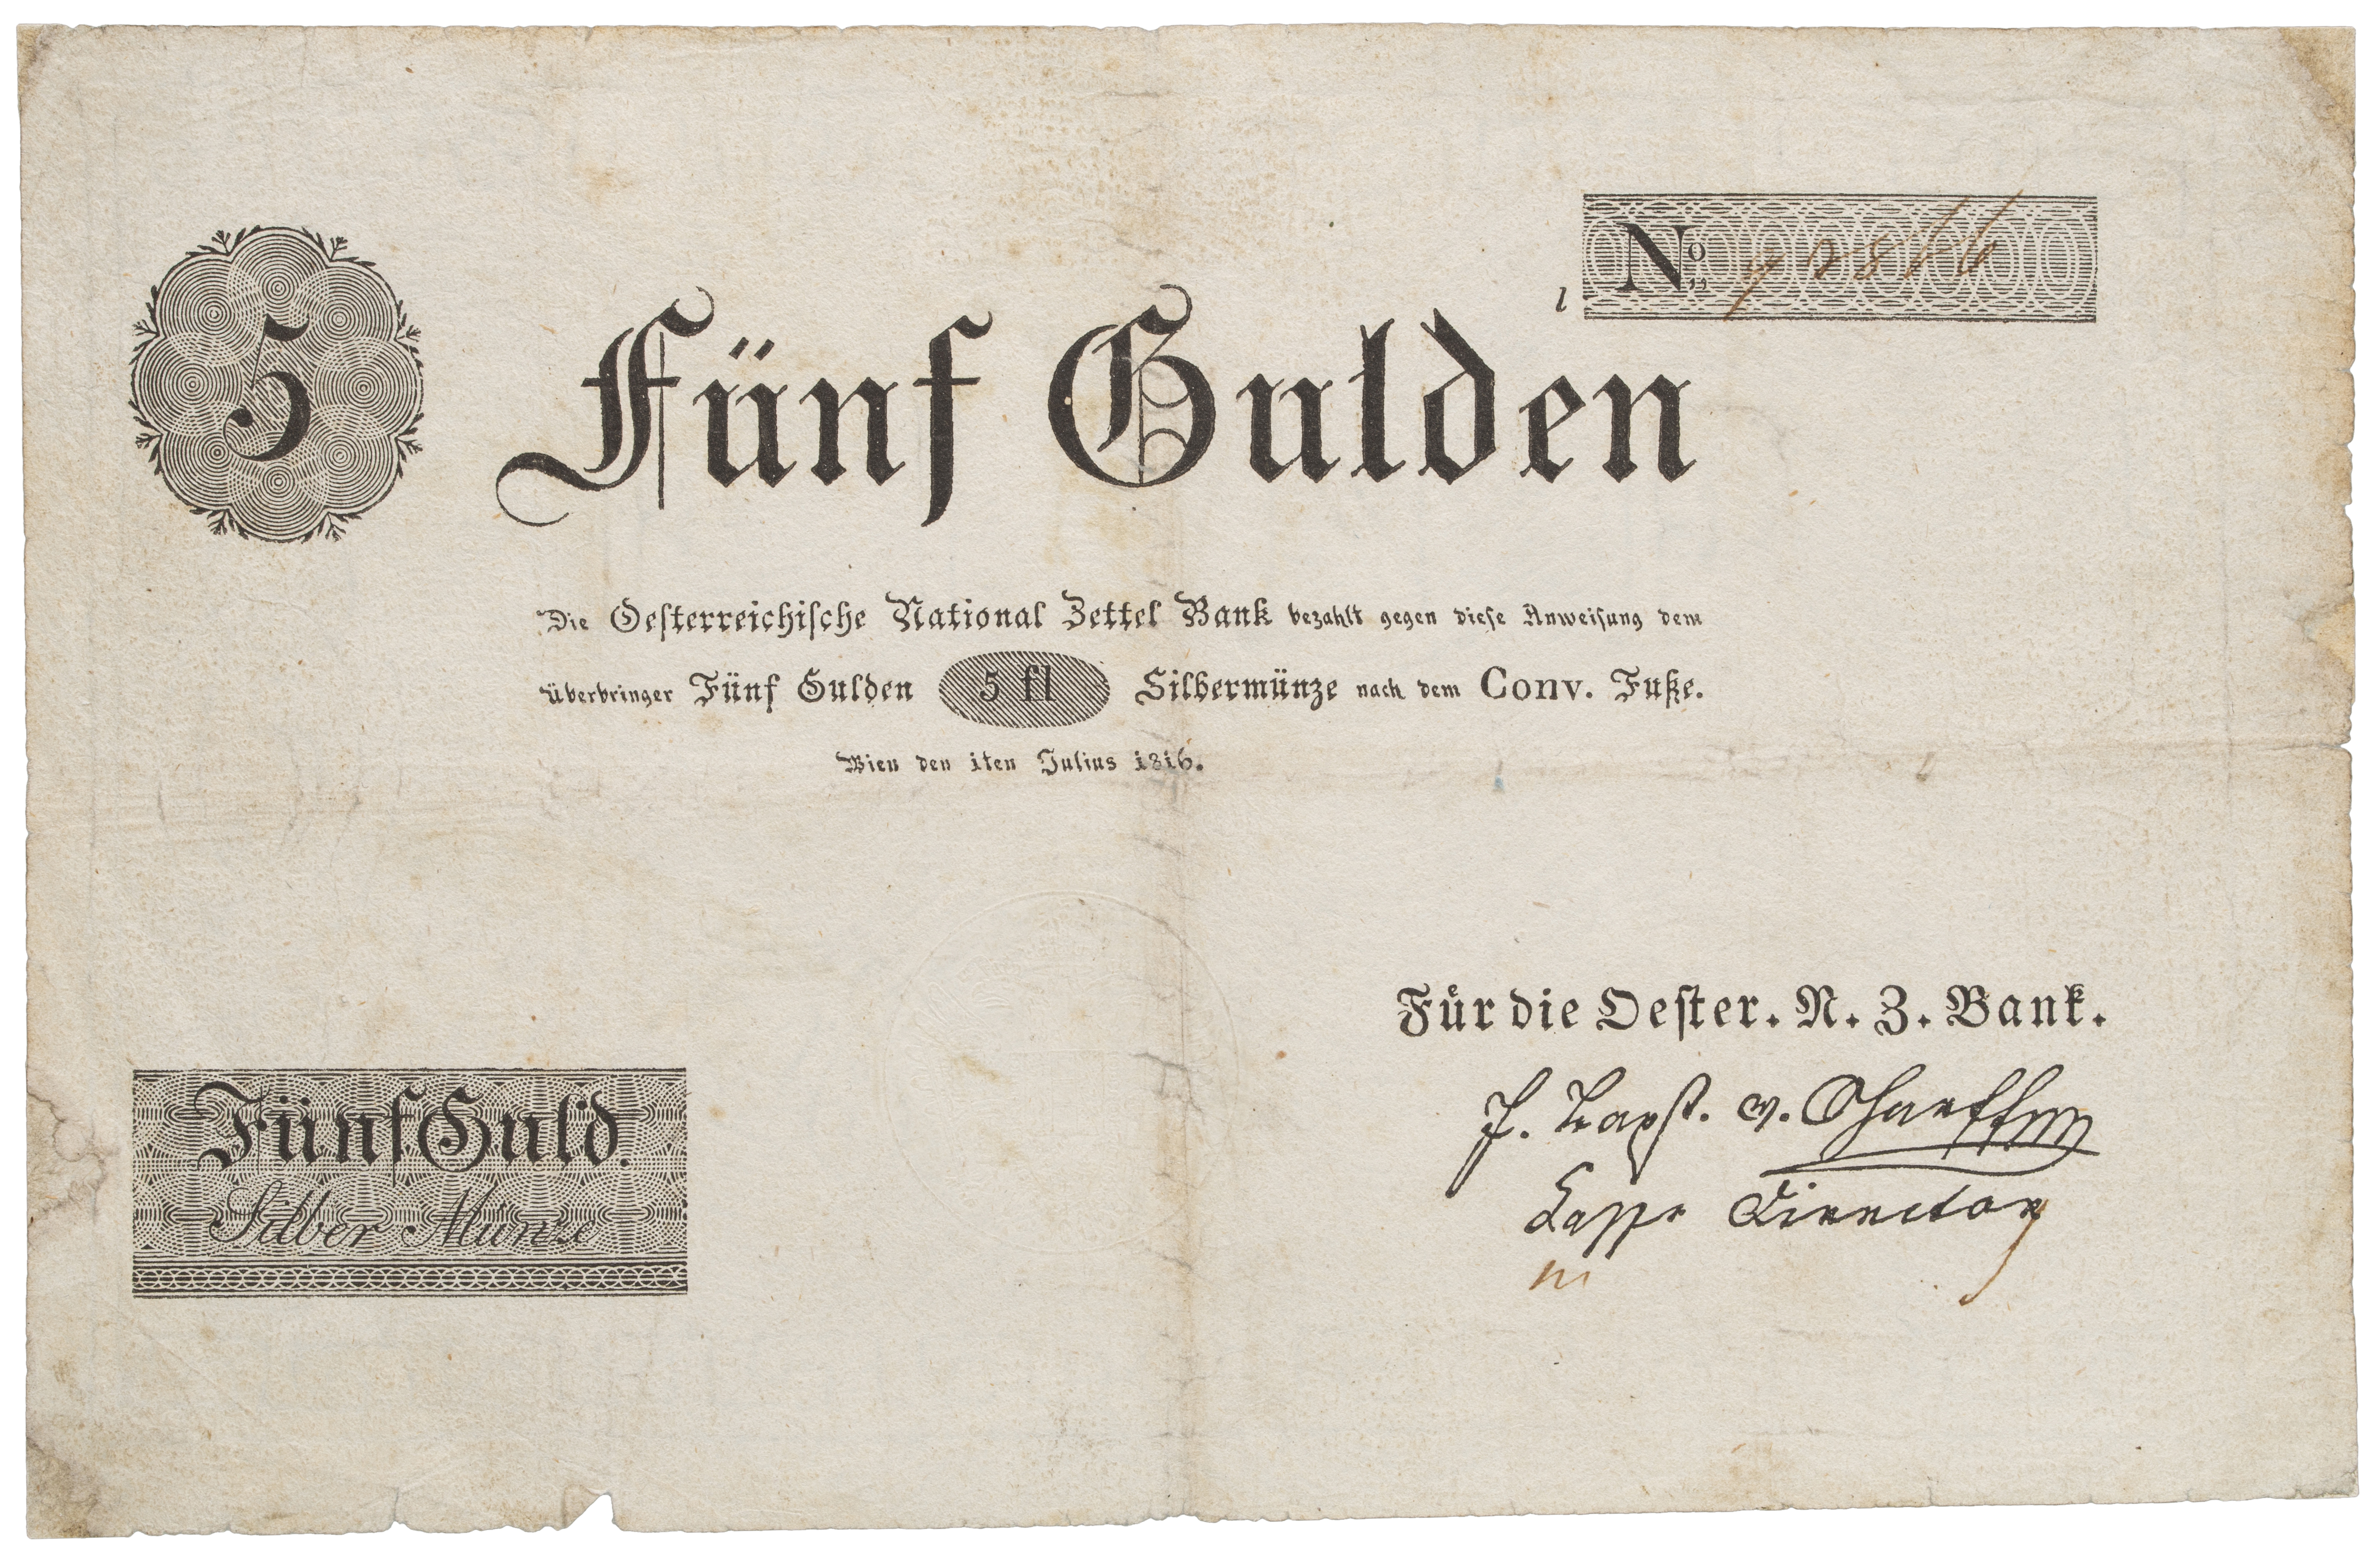 No 72866
l
5
Fünf Gulden
Die Oeſterreichiſche National Zettel Bank bezahlt gegen dieſe Anweiſung dem
Überbringer Fünf Gulden 5 fl Silbermünze nach dem Conv. Fuße.
Wien den 1ten Julius 1816.
Für die Oeſter. N. Z. Bank.
v.
Director
Fünf Guld.
Silber Münze